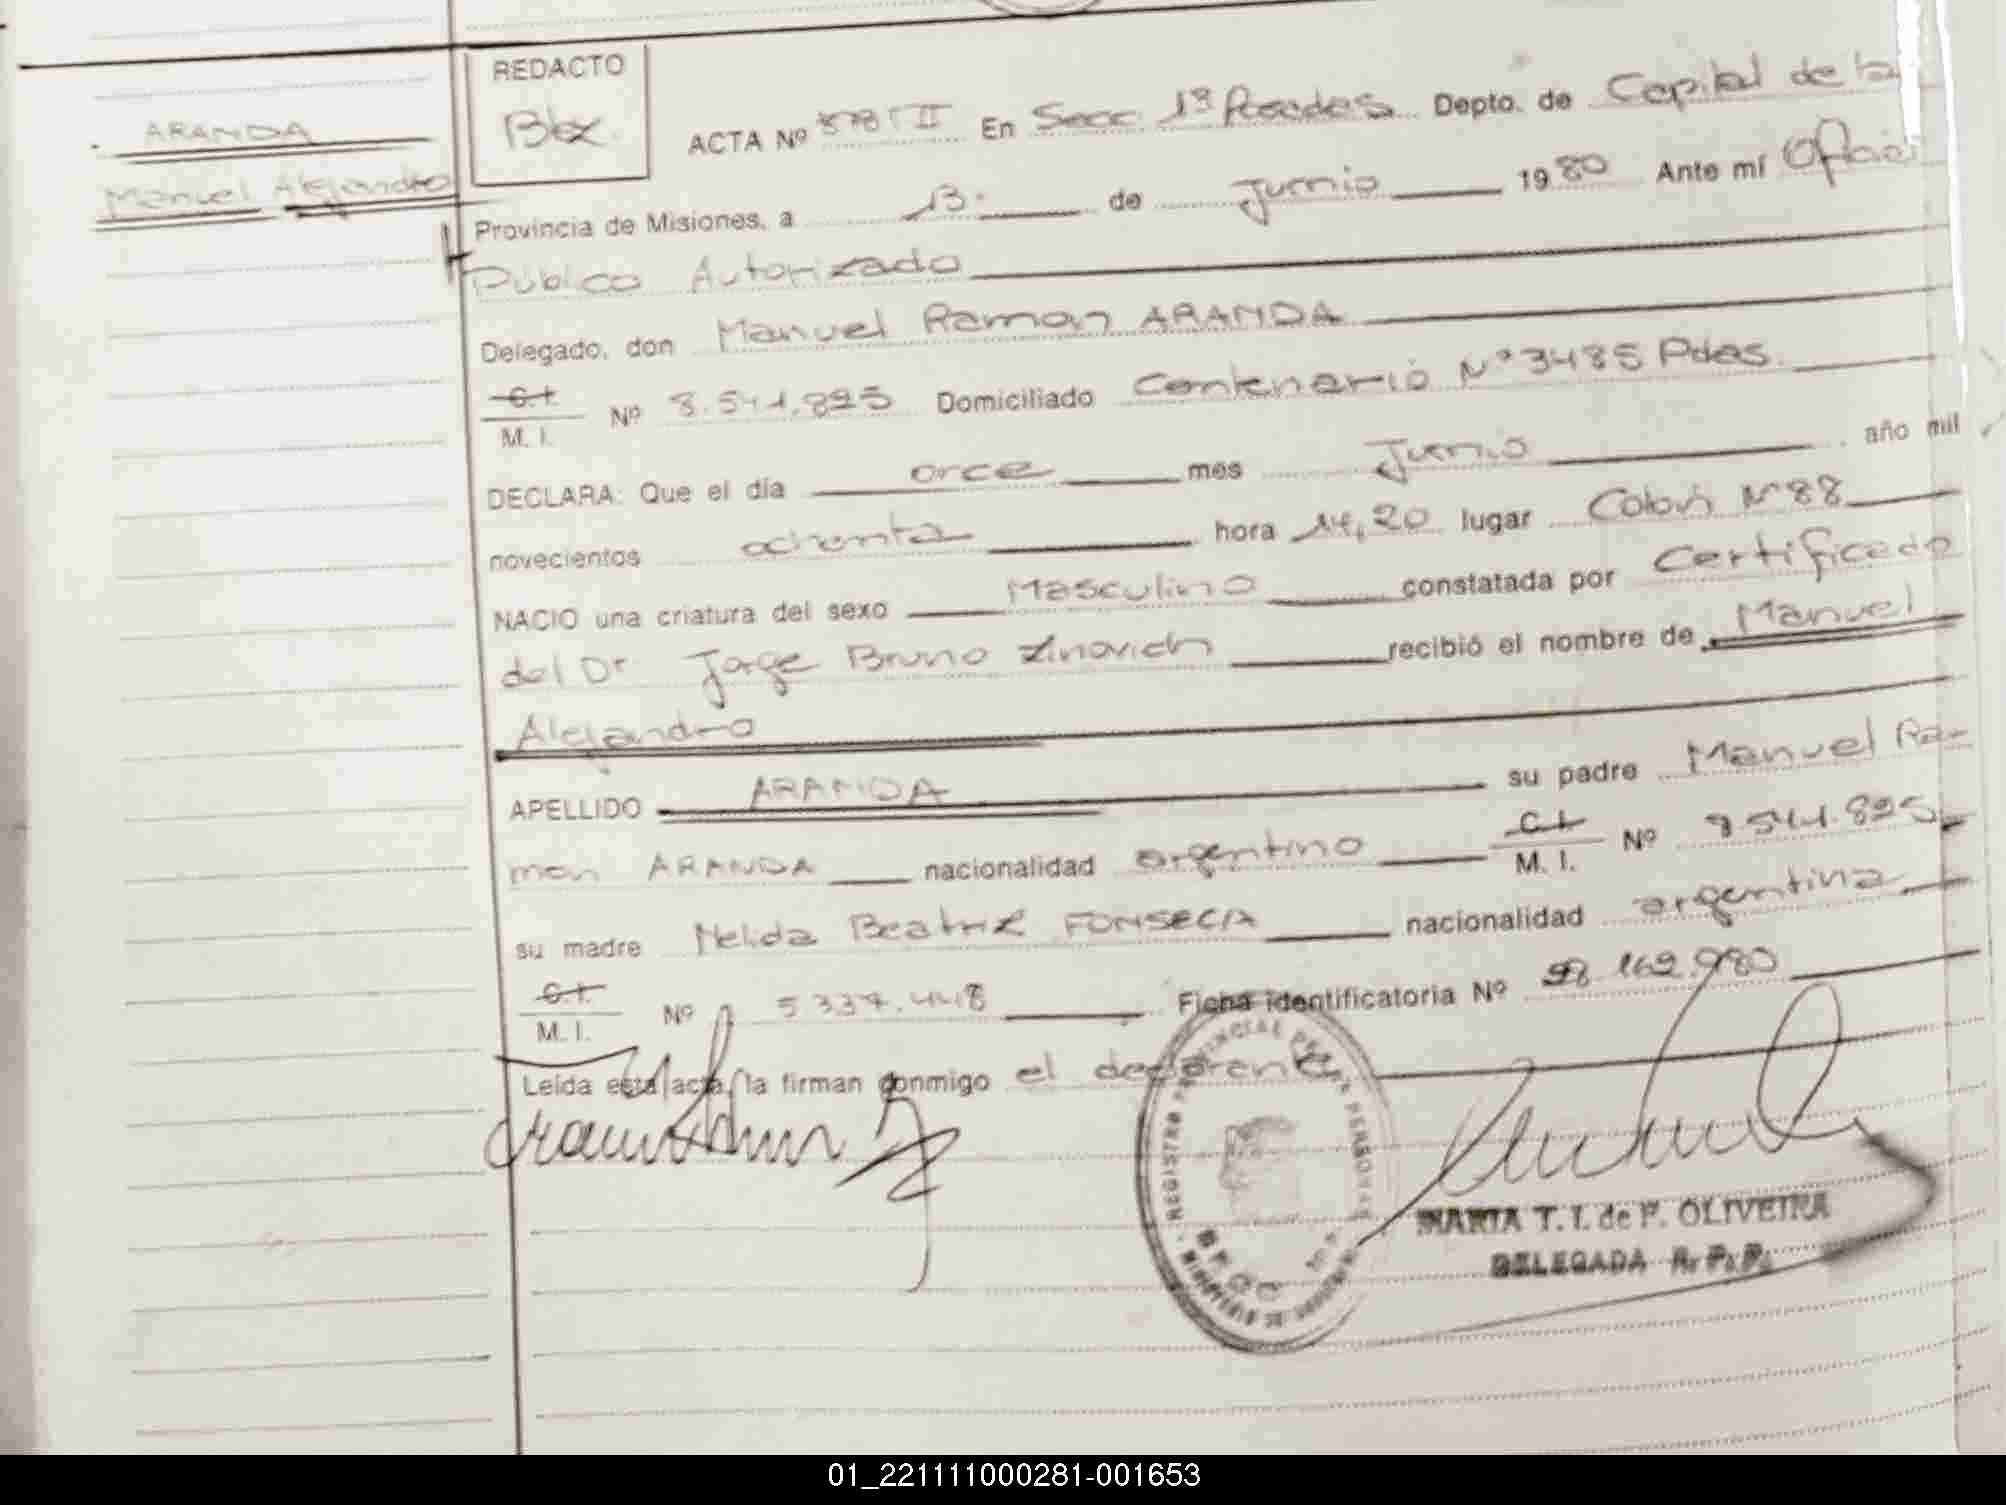 ARANDA
Manuel Alejandro
REDACTO
ACTA Nº 878 T II En Secc 1ª Posadas Depto. de Capital de la
Provincia de Misiones, a 13 de Junio 1980 Ante mí Oficial
Público Autorizado
Delegado, don Manuel Ramon ARANDA
C.I. M. I. Nº 8.541.895 Domiciliado Centenario Nº 3485 Pdas.
DECLARA: Que el día once mes Junio año mil
novecientos ochenta hora 14,20 lugar Colon Nº 88
NACIO una criatura del sexo Masculino constatada por Certificado
del Dr Jorge Bruno Zinovich recibió el nombre de Manuel
Alejandro
APELLIDO ARANDA su padre Manuel Ra-
mon ARANDA nacionalidad argentino C.I. M. I. Nº 8.541.895
su madre Nelida Beatriz FONSECA nacionalidad argentina
C.I. M. I. Nº 5 337.448 Ficha identificatoria Nº 28.162.980
Leída esta acta, la firman conmigo el declarante
REGISTRO PROVINCIAL DE LAS PERSONAS
MINISTERIO DE GOBIERNO
MARIA T. I. de P. OLIVEIRA
DELEGADA R. P. P.
01_221111000281-001653